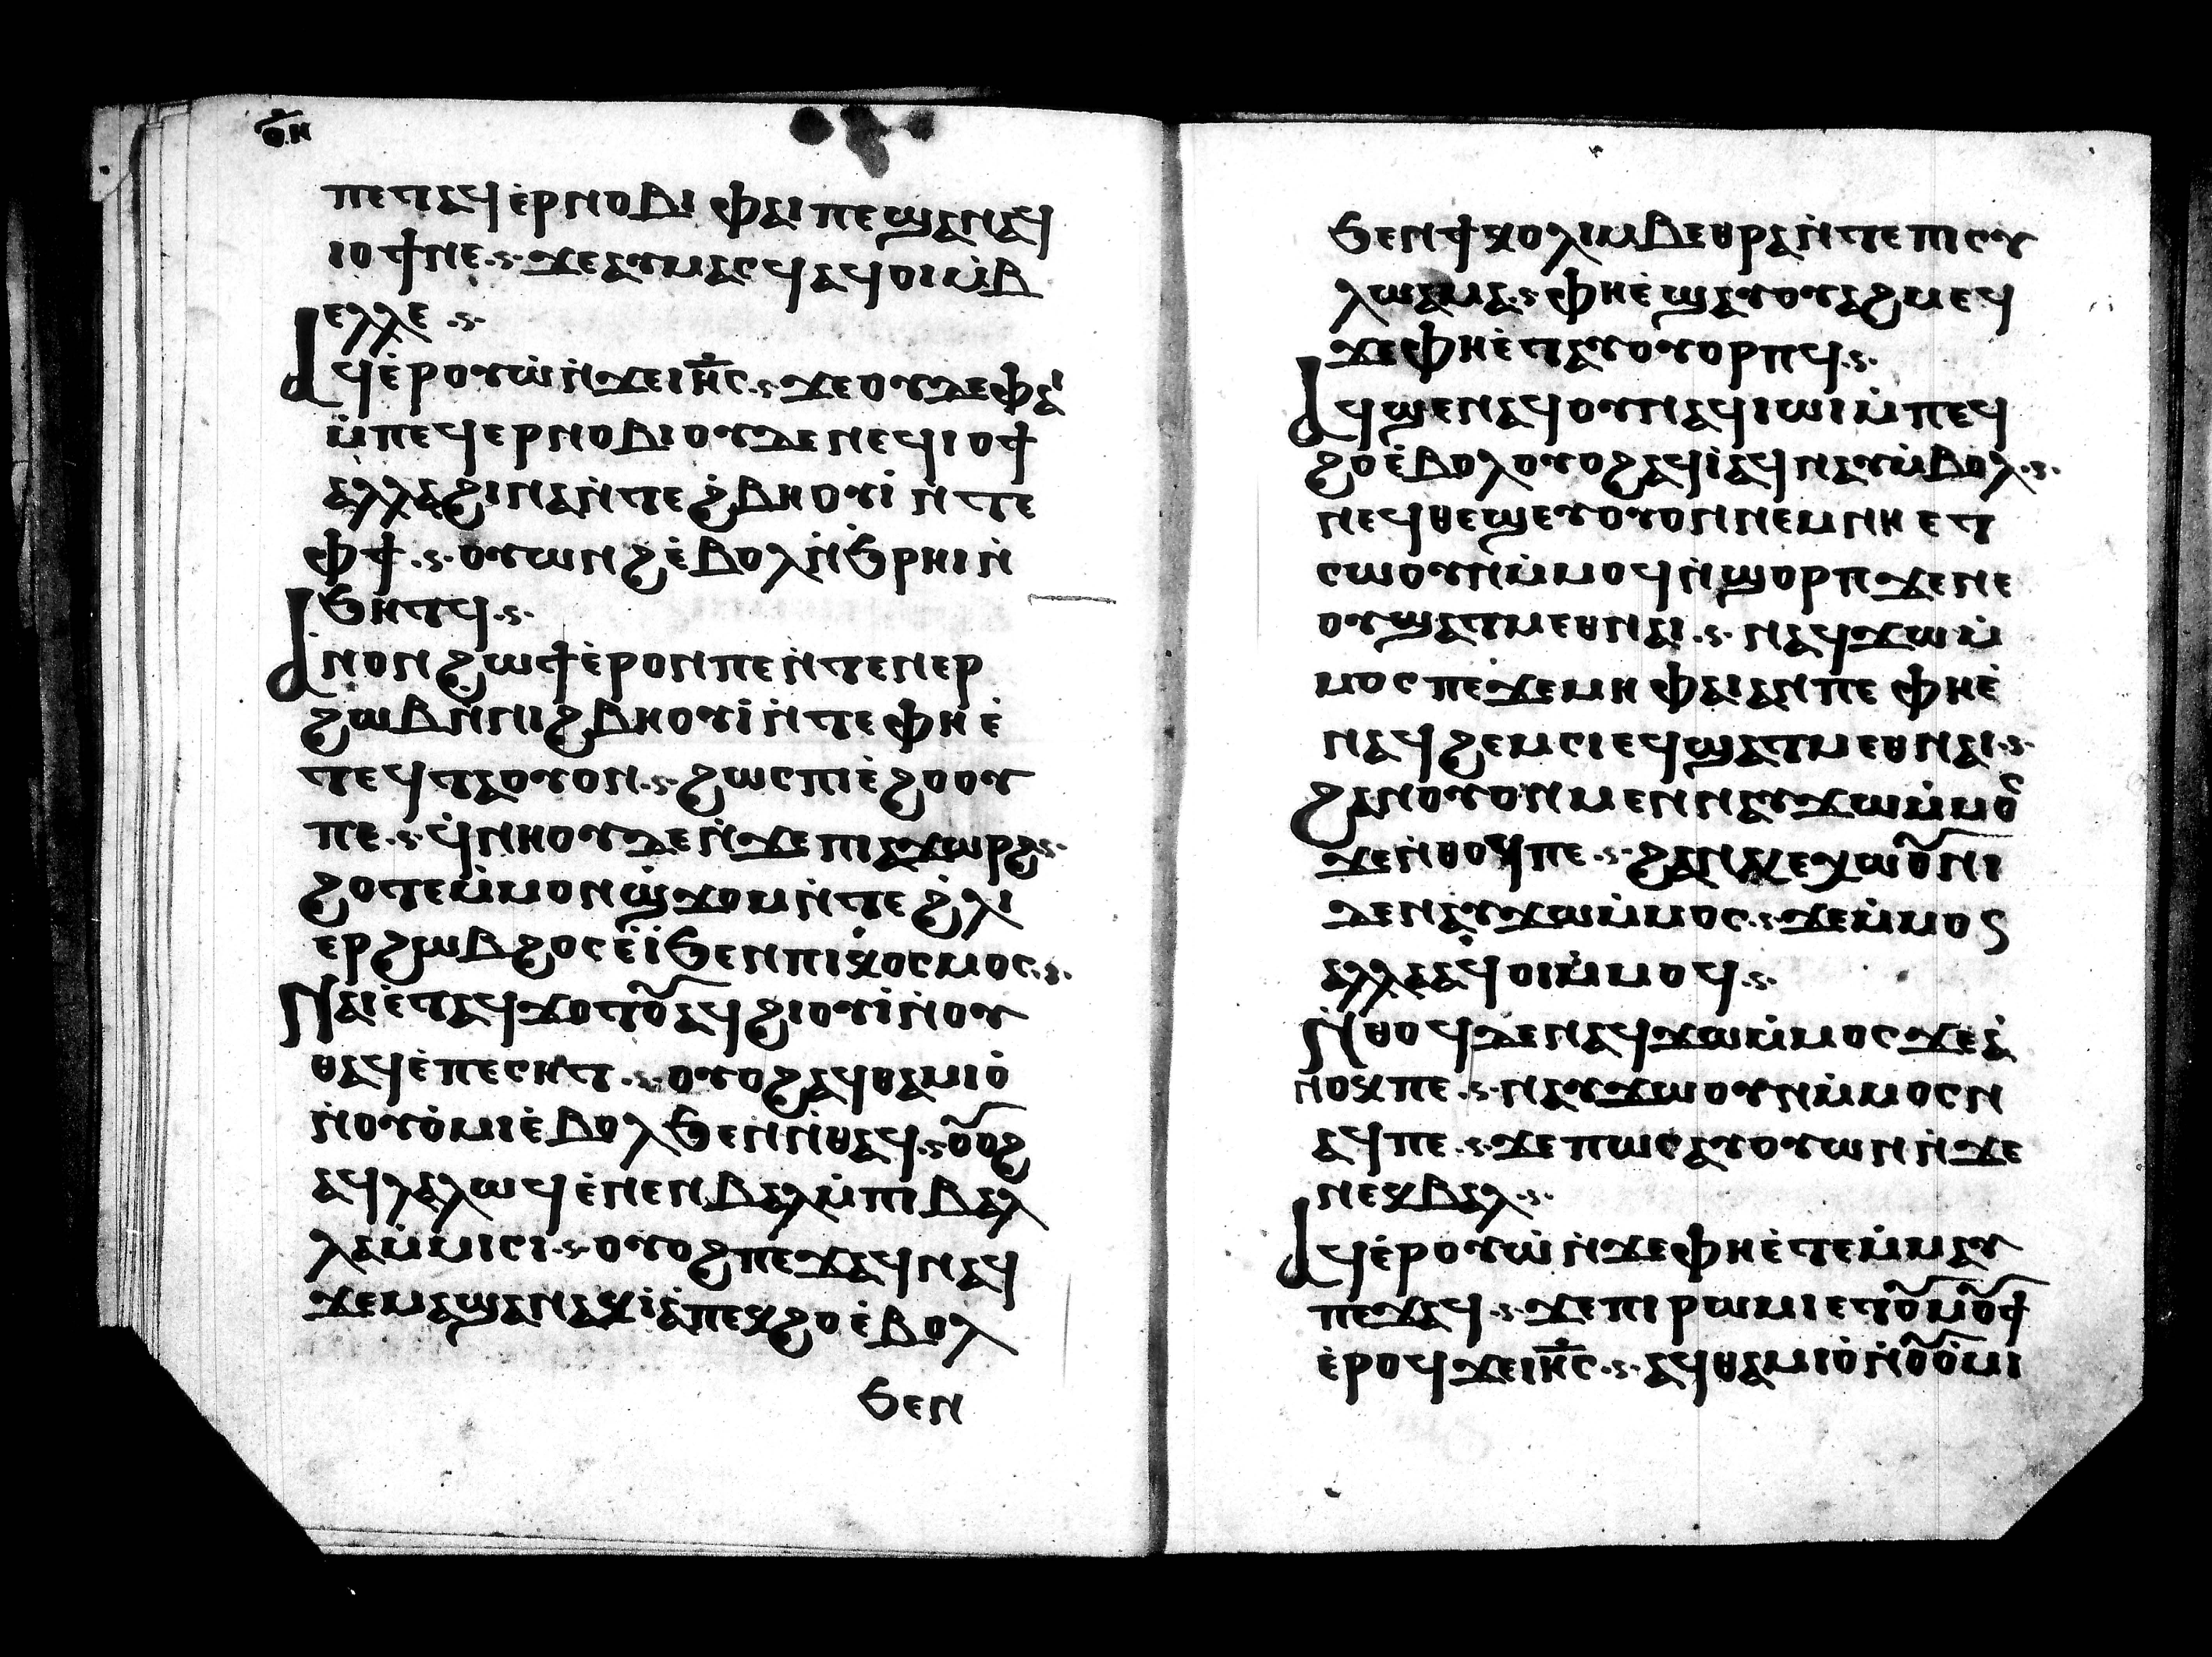 ⲟ̅ⲏ
ⲡⲉⲧⲁϥⲉ̀ⲣⲛⲟⲃⲓ ⲫⲁⲓ ⲡⲉ ϣⲁⲛⲁϥ
ⲓⲟϯⲛⲉ ⲋ ϫⲉⲁⲩⲙⲁⲥϥ ⲁϥⲟⲓⲙ̀ⲃ
ⲉⲗⲗⲉ ⲋ
Ⲁϥⲉ̀ⲣⲟⲩⲱ̀ⲛ̀ϫⲉⲓⲏ̅ⲥ ⲋ ϫⲉⲟⲩⲇⲉⲫⲁⲓ̀
ⲙ̀ⲡⲉϥⲉⲣⲛⲟⲃⲓⲟⲩⲇⲉⲛⲉϥⲓⲟϯ
ⲁⲗⲗⲁϩⲓⲛⲁⲛ̀ⲧⲉϩ̀ⲃⲏⲟⲩⲓ̀ ⲛ̀ⲧⲉ
ⲫϯ ⲋ ⲟⲩⲱⲛϩⲉ̀ⲃⲟⲗⲛ̀ϧⲣⲏⲓⲛ̀
ϧⲏⲧϥ ⲋ
Ⲁ̀ⲛⲟⲛϩⲱϯⲉ̀ⲣⲟⲛⲡⲉⲛ̀ⲧⲉⲛⲉⲣ
ϩⲱⲃⲛ̀ⲛⲓϩⲃⲏⲟⲩⲓ̀ⲛ̀ⲧⲉⲫⲏⲉ̀
ⲧⲉϥⲧⲁⲟⲩⲟⲛ ⲋ ϩⲱⲥⲡⲓⲉ̀ϩⲟⲟⲩ
ⲡⲉ ⲋ ϥ̀ⲛⲏⲟⲩⲇⲉⲛ̀ϫⲉⲡⲓⲉϫⲱⲣϩ ⲋ
ϩⲟⲧⲉⲙ̀ⲙⲟⲛϣ̀ϫⲟⲙⲛ̀ⲧⲉϩ̀ⲗⲓ
ⲉⲣϩⲱⲃϩⲟⲥⲉ̀ⲓ̀ϧⲉⲛⲡⲓⲕⲟⲥⲙⲟⲥ ⲋ
Ⲛⲁⲓⲉ̀ⲧⲁϥϫⲟⲧⲟ̅ⲁϥϩⲓⲟⲩⲓ̀ⲛ̀ⲟⲩ
ⲑⲁϥⲉ̀ⲡⲉⲥⲏⲧ ⲋ ⲟⲩⲟϩⲁϥⲑⲁⲙⲓⲟ̀
ⲛ̀ⲟⲩⲟ̀ⲙⲓⲉ̀ⲃⲟⲗϧⲉⲛⲛ̀ⲑⲁϥ ⲋ ⲟ̅ⲟϩ
ⲁϥⲗⲁⲗⲱϥⲉ̀ⲛⲉⲛⲃⲁⲗⲙ̀ⲡⲓⲃⲁⲗ
ⲗⲁⲙ̀ⲙⲓⲥⲓ ⲋ ⲟⲩⲟϩⲡⲉϫⲁϥⲛⲁϥ
ϫⲉⲙⲁϣⲁⲛⲁⲕⲓⲁ̀ⲡⲉⲕϩⲟⲉ̀ⲃⲟⲗ
ϧⲉⲛ
ϧⲉⲛϯⲕⲟⲗⲓⲙⲃⲉⲑⲣⲁⲛ̀ⲧⲉⲡⲓⲥⲩ
ⲗⲱⲁⲙⲁ ⲋ ⲫⲏⲉ̀ϣⲁⲩⲟⲩⲁϩⲙⲉϥ
ϫⲉⲫⲏⲉ̀ⲧⲁⲩⲟⲩⲟⲣⲡϥ ⲋ
Ⲁϥϣⲉⲛⲁϥⲟⲩⲛⲁϥⲓⲱⲓⲙ̀ⲡⲉϥ
ϩⲟⲉ̀ⲃⲟⲗⲟⲩⲟϩⲁϥⲓ̀ⲁϥⲛⲁⲩⲙ̀ⲃⲟⲗ ⲋ
ⲛⲉϥⲑⲉϣⲉⲩⲟⲩⲟⲛⲛⲉⲙⲛⲏⲉⲧ
ⲥⲱⲟⲩⲛⲙ̀ⲙⲟϥⲛ̀ϣⲟⲣⲡϫⲉⲛⲉ
ⲟⲩϣⲁⲧⲙⲉⲑⲛⲁⲓ ⲋ ⲛⲁϥϫⲱⲙ̀
ⲙⲟⲥⲡⲉϫⲉⲙⲏⲫⲁⲓⲁⲛⲡⲉⲫⲏⲉ̀
ⲛⲁϥϩⲉⲙⲥⲓⲉϥϣⲁⲧⲙⲉⲑⲛⲁⲓ ⲋ
Ϩⲁⲛⲟⲩⲟⲛⲙⲉⲛⲛⲁⲩϫⲱⲙ̀ⲙⲟⲥ
ϫⲉⲛ̀ⲑⲟϥⲡⲉ ⲋ ϩⲁⲛⲕⲉⲭⲱⲟ̅ⲛⲓ
ⲇⲉⲛⲁⲩϫⲱⲙ̀ⲙⲟⲥ ⲋ ϫⲉⲙ̀ⲙⲟⲥ
ⲁⲗⲗⲁⲁϥⲟⲓⲙ̀ⲙⲟϥ ⲋ
Ⲛ̀ⲑⲟϥⲇⲉⲛⲁϥϫⲱⲙ̀ⲙⲟⲥϫⲉⲁ̀
ⲛⲟⲕⲡⲉ ⲋ ⲛⲁⲩϫⲱⲟⲩⲛⲙ̀ⲙⲟⲥⲛ
ⲁϥⲡⲉ ⲋ ϫⲉⲡⲱⲥⲁⲩⲟⲩⲱⲛⲛ̀ϫⲉ
ⲛⲉⲕⲃⲁⲗ ⲋ
Ⲁϥⲉ̀ⲣⲟⲩⲱ̀ⲛ̀ϫⲉⲫⲏⲉ̀ⲧⲉⲙ̀ⲙⲁⲩ
ⲡⲉϫⲁϥ ⲋ ϫⲉⲡⲓⲣⲱⲙⲓⲉⲧⲟ̅ⲙⲟ̅ϯ
ⲉ̀ⲣⲟϥϫⲉⲓⲏ̅ⲥ ⲋ ⲁϥⲑⲁⲙⲓⲟ̀ⲛ̀ⲟ̅ⲟ̀ⲙⲓ